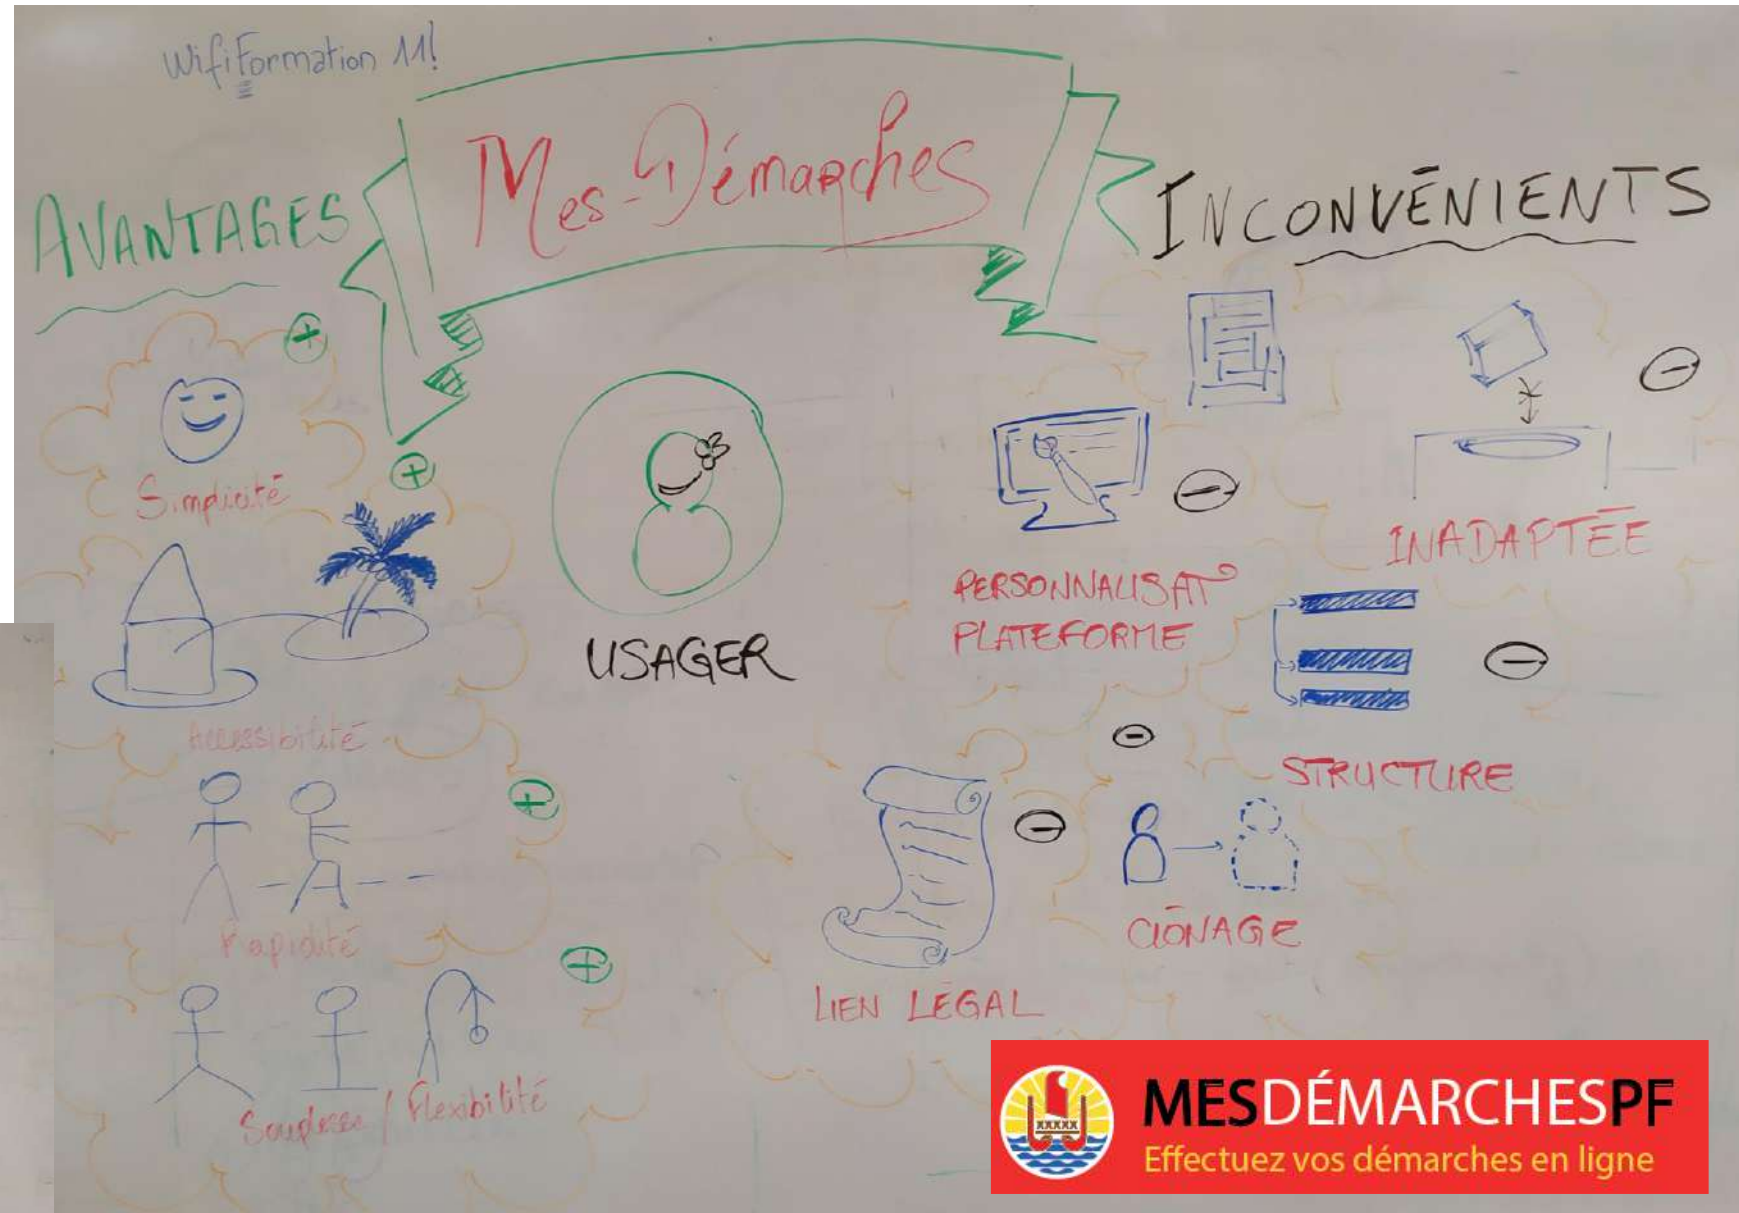 WifiFormation 11!
Mes-Démarches
AVANTAGES
INCONVÉNIENTS
Simplicité
Accessibilité
Rapidité
Souplesse / Flexibilité
USAGER
PERSONNALISAT°
PLATEFORME
INADAPTÉE
STRUCTURE
LIEN LÉGAL
CLÔNAGE
MESDÉMARCHESPF
Effectuez vos démarches en ligne